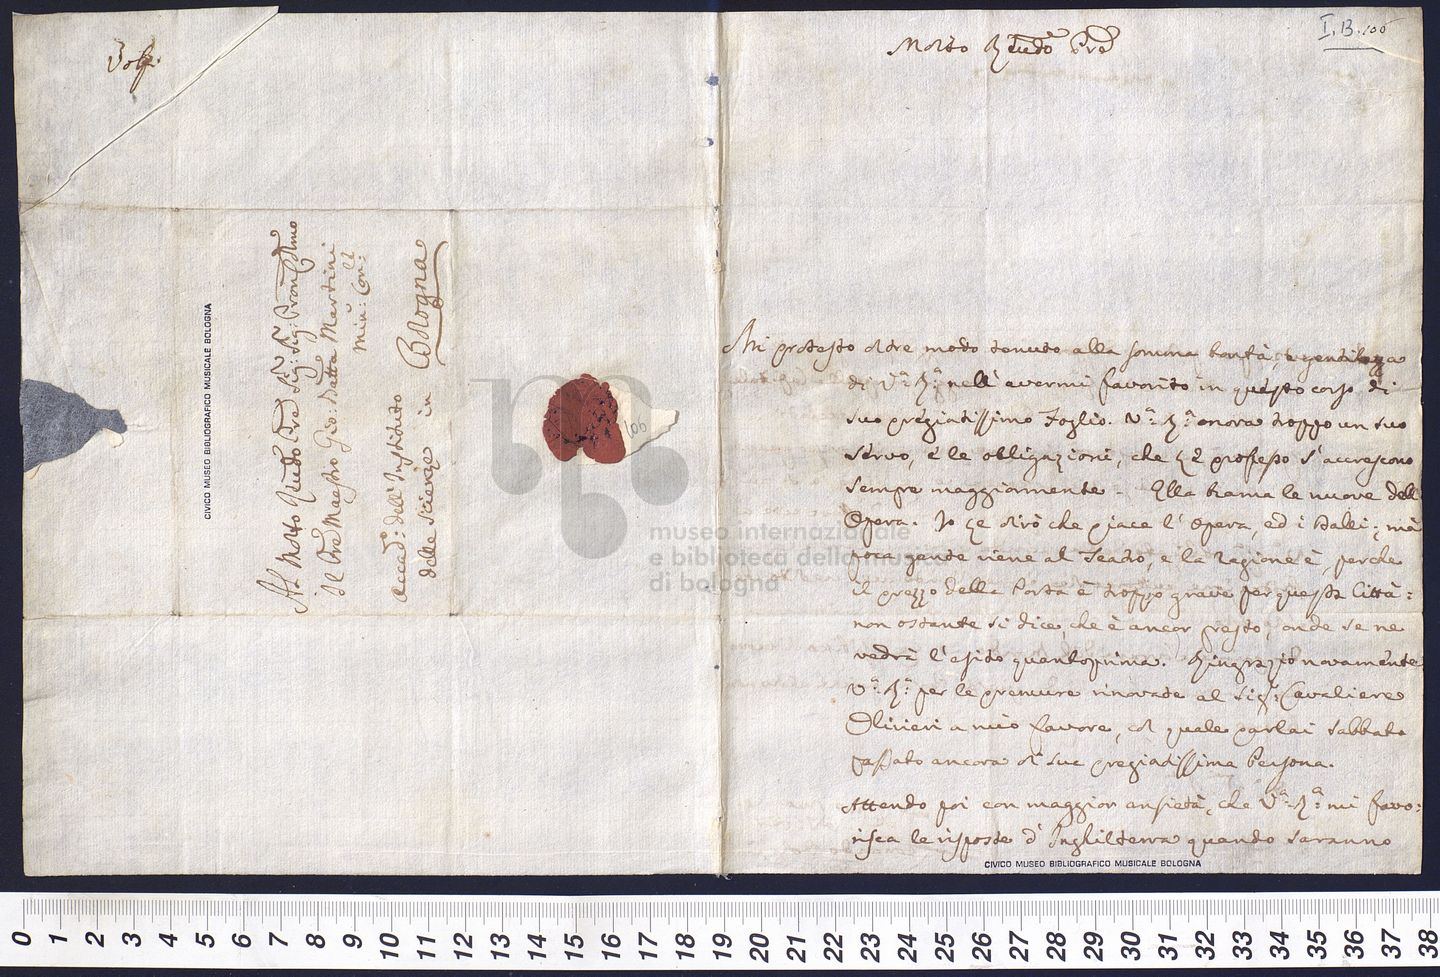 Volp.
Al Molto Rndo Pre Sig: Sig: Pron Cmo
Il Pre Maestro Gio: Batta Martini
Min: Con:
Accad: dell' Instituto
delle Scienze in Bologna
CIVICO MUSEO BIBLIOGRAFICO MUSICALE BOLOGNA
100
museo internazionale
e biblioteca della musica
di bologna
I.B.100
Molto Rndo Pre
Mi protesto oltre modo tenuto alla somma bontà, e gentilezza
di V.a R.a nell' avermi favorito in questo corso di
suo pregiatissimo Foglio. V.a R.a onora troppo un suo
servo, e le obligazioni, che Le professo s' accrescono
sempre maggiormente. Ella brama le nuove dell'
Opera. Io Le dirò che piace l' opera, ed i Balli; mà
poca gente viene al Teatro, e la ragione è, perche
il prezzo della Porta è troppo grave per questa Città:
non ostante si dice, che è ancor presto, onde se ne
vedrà l' esito quantoprima. Ringrazio novamente
V.a R.a per le premure rinovate al Sig.r Cavaliere
Olivieri a mio favore, col quale parlai sabbato
passato ancora di sue pregiadissima Persona.
Attendo poi con maggior ansietà, che V.a R.a mi favo:
risca le risposte d' Inghilterra quando saranno
CIVICO MUSEO BIBLIOGRAFICO MUSICALE BOLOGNA
0 1 2 3 4 5 6 7 8 9 10 11 12 13 14 15 16 17 18 19 20 21 22 23 24 25 26 27 28 29 30 31 32 33 34 35 36 37 38